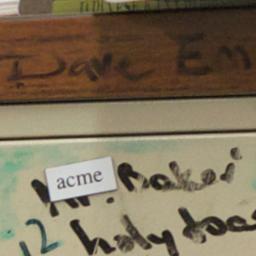 Dave Em
acme
Mr. Baker
12 holy toa